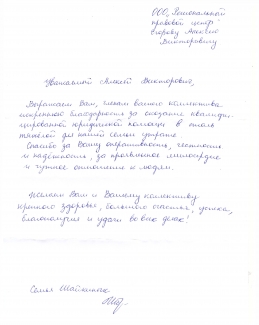 ООО „Региональный
правовой центр"
Егорову Алексею
Викторовичу
Уважаемый Алексей Викторович,
Выражаем Вам, членам вашего коллектива
искреннюю благодарность за оказание квалифи-
цированной юридической помощи в столь
тяжёлой для нашей семьи утрате.
Спасибо за Вашу оперативность, честность
и надёжность, за проявленное милосердие
и чуткое отношение к людям.
Желаем Вам и Вашему коллективу
крепкого здоровья, большого счастья, успеха,
благополучия и удачи во всех делах!
Семья